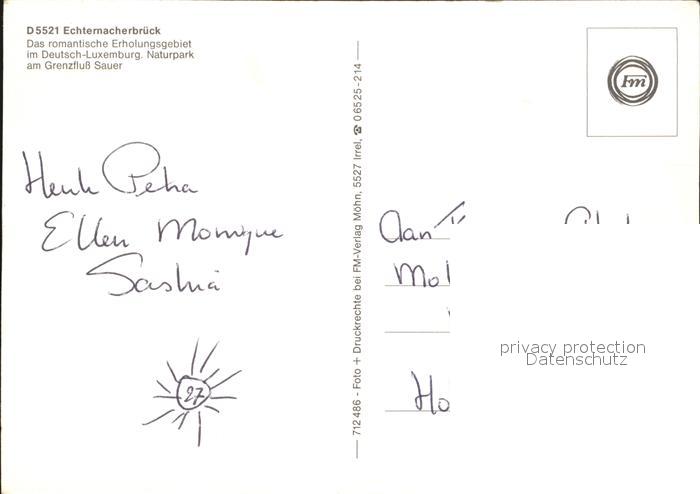 D 5521 Echternacherbrück
Das romantische Erholungsgebiet
im Deutsch-Luxemburg. Naturpark
am Grenzfluß Sauer
Henk Petra
Ellen Monique
Saskia
27
712 486 - Foto + Druckrechte bei FM-Verlag Möhn, 5527 Irrel, ☎ 06525-214
Fm
Aan
Mol
Ho
privacy protection
Datenschutz